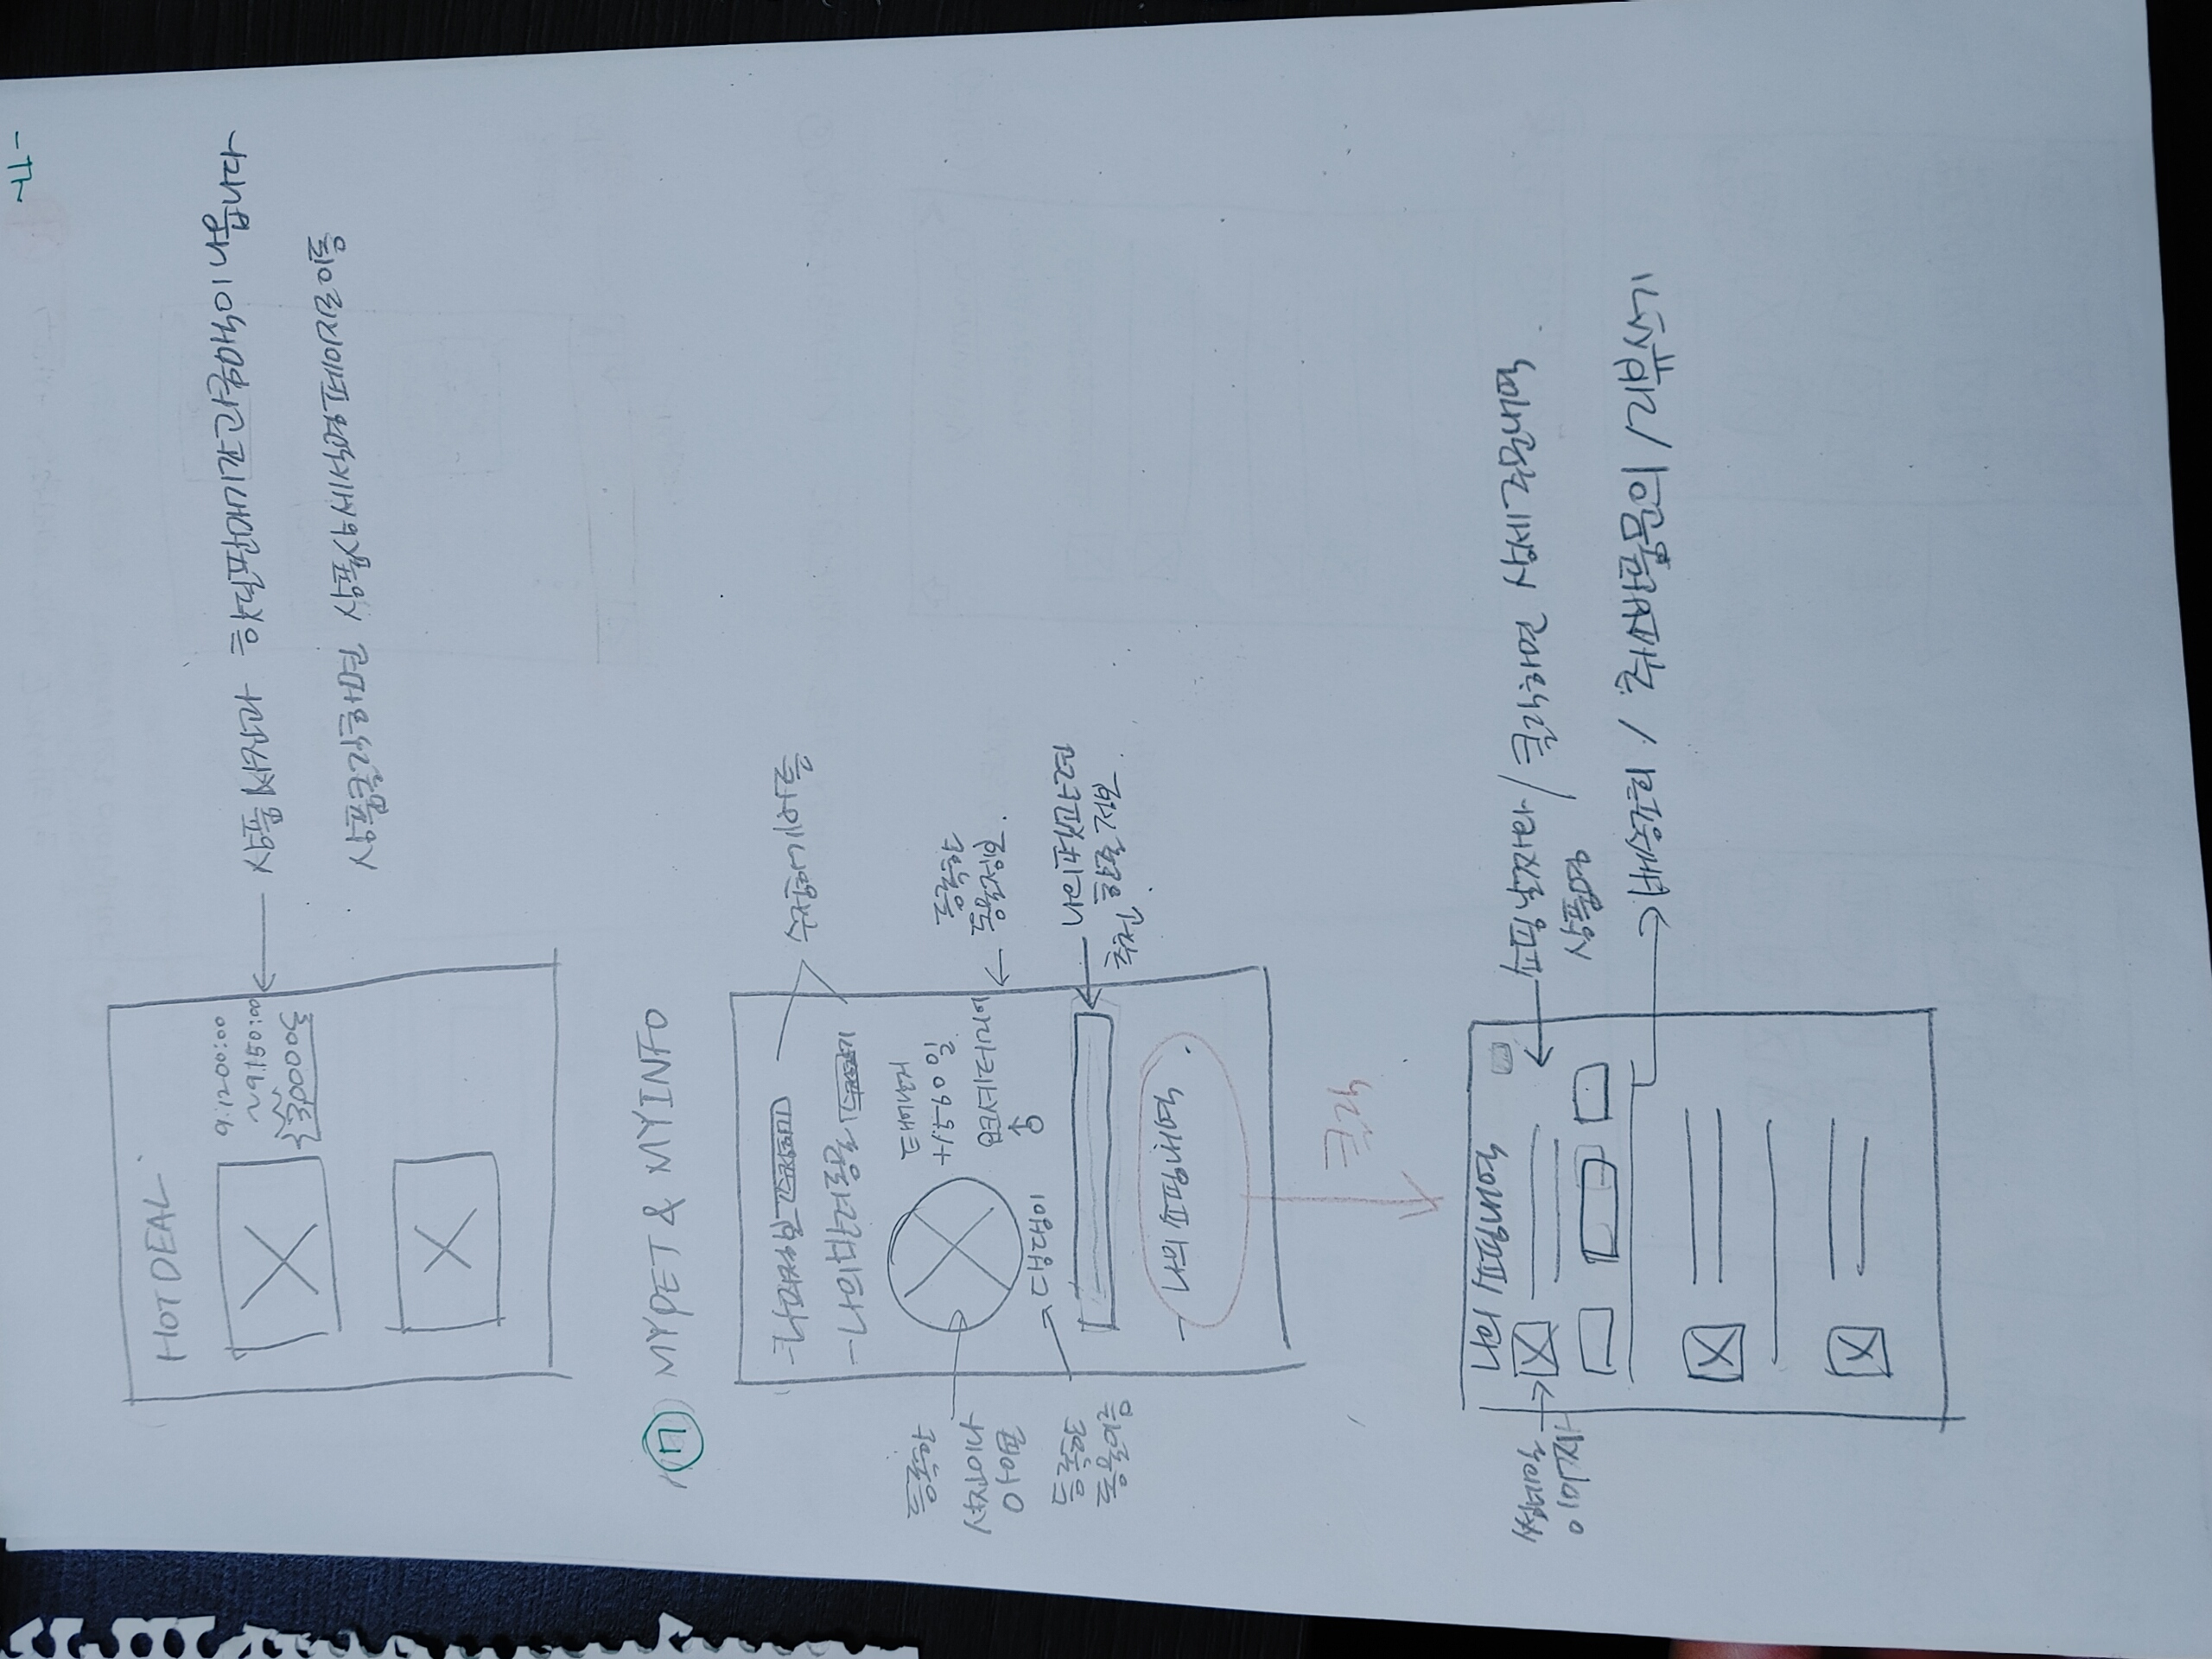 HOT DEAL
9.12 00:00
~9.15 0:00
상품 사진과 핫딜판매기간과금액이 나옵니다
상품클릭하면 상품상세설명 페이지로이동
MYPET & MYINFO
-나의정보 수정하기
-나의반려동물
수정하기버튼
등록한
사진이나
아이콘
태어난지
+1560일
요크셰테리어
등록한
동물정보.
댕댕이
등록한
동물이름
나의펫관련
추천 한줄 정보
- 나의 쇼핑내역
클릭
나의 쇼핑내역
썸네일
이미지
쇼핑날짜와 / 클릭하면 상세주문내역
상품명
배송조회 / 취소반품문의 / 리뷰쓰기